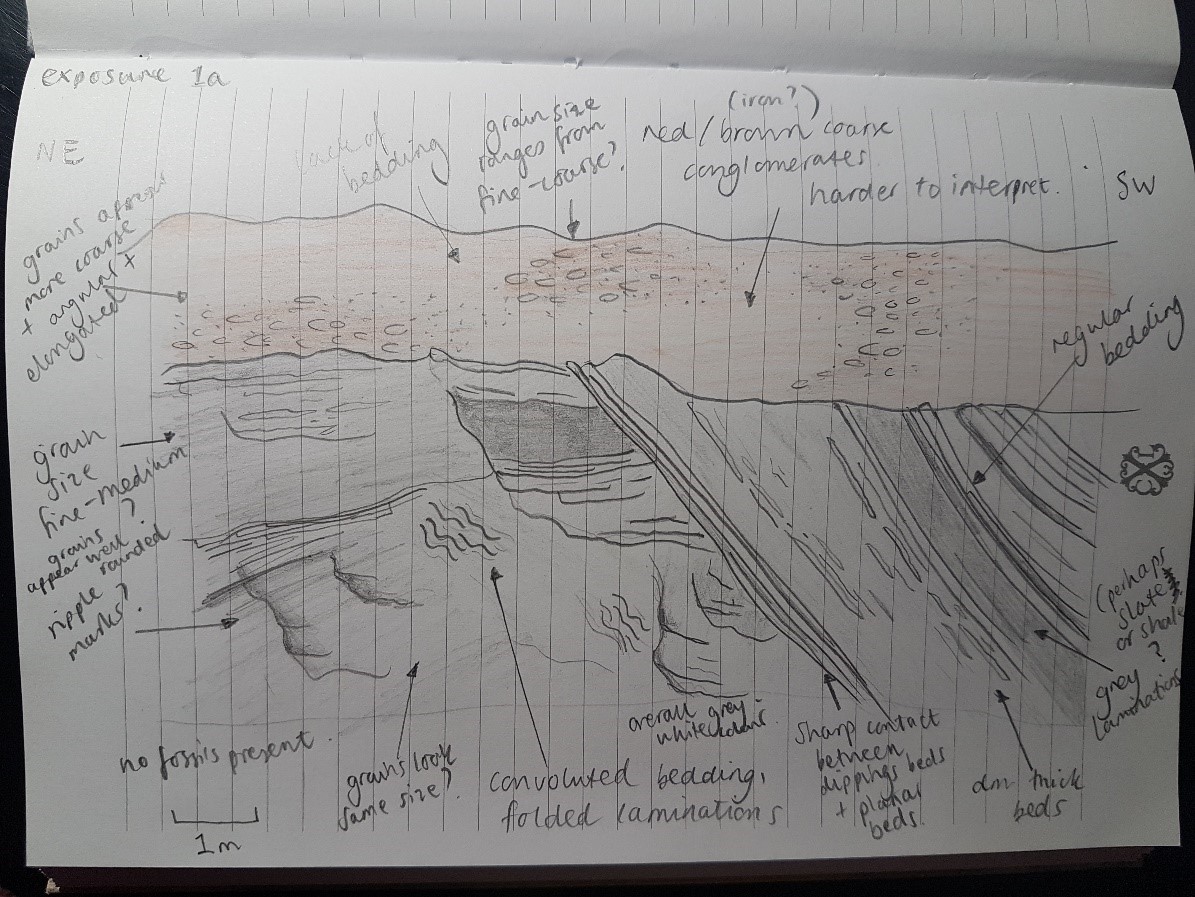 exposure 1a
NE
lack of
bedding
grain size
ranges from
fine-coarse?
(iron?)
red/brown coarse
conglomerates
harder to interpret.
SW
grains appear
more coarse
+ angular +
elongated
regular
bedding
grain
size
fine-medium
?
grains
appear well
rounded
ripple
marks?
(perhaps
slate
or shale
?
grey
laminations
no fossils present.
grains look
same size?
convoluted bedding,
folded laminations
overall grey-
white colour.
sharp contact
between
dippings beds
+ planar
beds.
dm thick
beds
1m